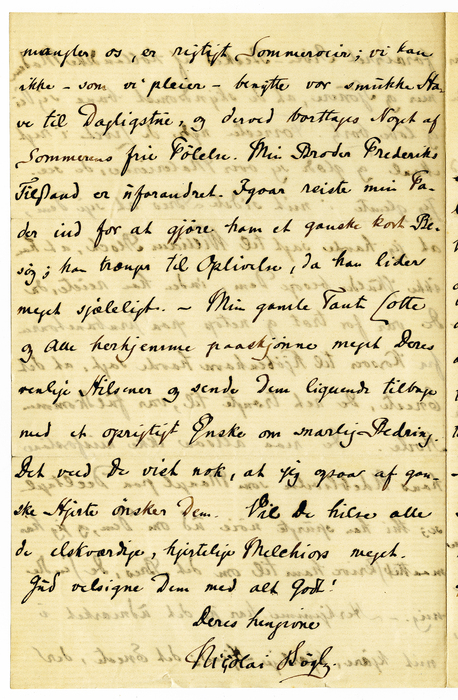 mangler os, er rigtigt Sommerveir; vi kan
ikke – som vi pleier – benytte vor smukke Ha-
ve til Dagligstue, og derved borttages Noget af
Sommerens frie Følelse. Min Broder Frederiks
Tilstand er uforandret. Igaar reiste min Fa-
der ind for at gjöre ham et ganske kort Be-
søg; han trænger til Oplivelse, da han lider
meget sjæleligt. – Min gamle Tante Lotte
og Alle herhjemme paaskjønne meget Deres
venlige Hilsener og sende Dem lignende tilbage
med et oprigtigt Ønske om snarlig Bedring.
Det veed De vist nok, at jeg ogsaa af gan-
ske Hjerte ønsker Dem. Vil De hilse alle
de elskværdige, hjertelige Melchiors meget.
Gud velsigne Dem med alt Godt!
Deres hengivne
Nicolai Bøgh.